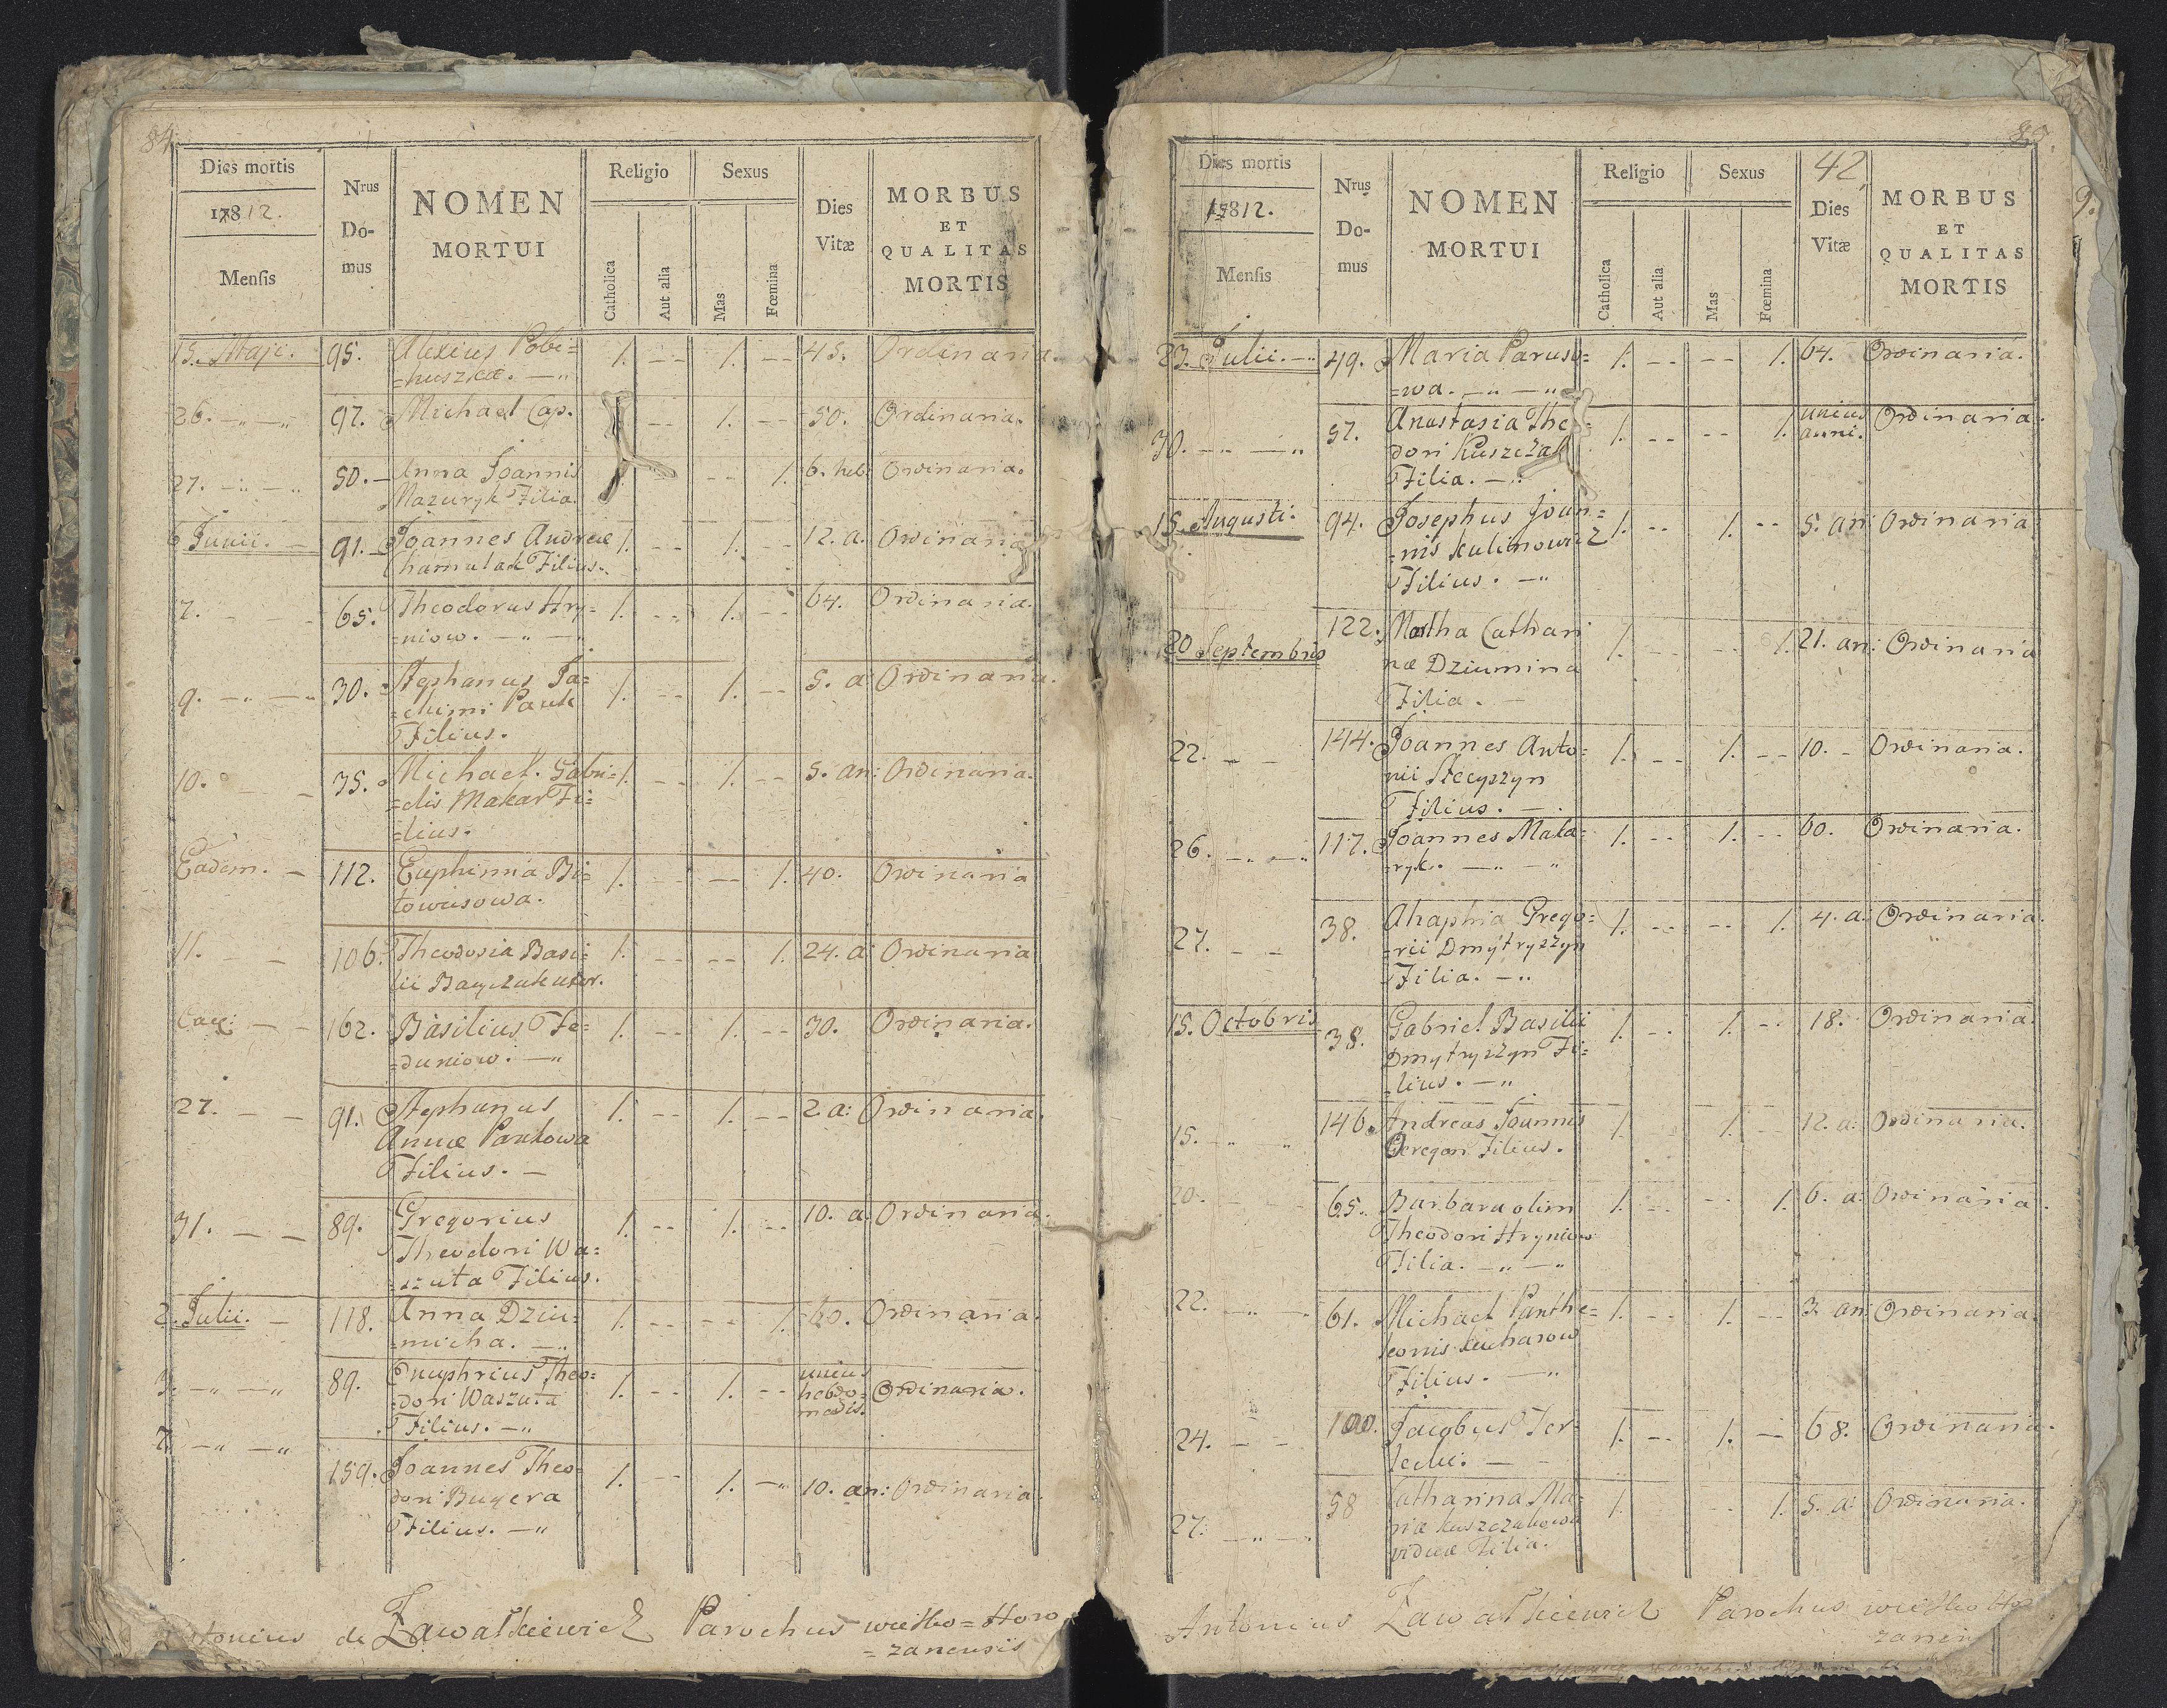 84.
Dies mortis
1812.
Mensis
Nrus Do-
mus
NOMEN
MORTUI
Religio
Catholica
Aut alia
Sexus
Mas
Fœmina
Dies
Vitæ
MORBUS
ET
QUALITAS
MORTIS
15. Maji. 95. Alexius Pobi= 1. -- 1. -- 45. Ordinaria.
=huszka. —"
26. —"—" 97. Michael Cap. -- 1. -- 50. Ordinaria.
27. —"—" 50. Anna Joannis -- 1. 6. heb: Ordinaria.
Mazuryk Filia.
6 Junii. — 91. Joannes Andreæ 1. -- 1. -- 12. a. Ordinaria
Chamulak Filius.
7. — — 65. Theodorus Hry= 1. -- 1. -- 64. Ordinaria.
=niow. —"—
9. —"—" 30. Stephanus Ja= 1. -- 1. -- 5. a: Ordinaria.
=chimi Pauk
Filius.
10. — — 35. Michael Gabri= 1. -- 1. -- 5. an: Ordinaria.
=elis Makar Fi=
=lius.
Eadem. — 112. Euphimia Bi= 1. -- -- 1. 40. Ordinaria
towusowa.
11. — — 106. Theodosia Basi= 1. -- -- 1. 24. a: Ordinaria
lii
— — 162. Basilius Fe= 1. -- 1. -- 30. Ordinaria.
=duniow. —"
27. — — 91. Stephanus 1. -- 1. -- 2 a: Ordinaria.
Annæ Paukowa
Filius. —
31. — — 89. Gregorius 1. -- 1. -- 10. a: Ordinaria.
Theodori Wa=
=szuta Filius.
2. Julii. — 118. Anna Dziu= 1. -- -- 1. 60. Ordinaria.
=micha. —"
3. —"—" 89. Onuphrius Theo= 1. -- 1. -- unius
=dori Waszuta hebdo= Ordinaria.
Filius. —" madis.
7. —"—" 159. Joannes Theo= 1. -- 1. —" 10. an: Ordinaria.
dori Bugera
Filius. —"
de Zawatkiewicz Parochus wielko=Horo
=zanensis
85.
42
Dies mortis
1812.
Mensis
Nrus
Do-
mus
NOMEN
MORTUI
Religio
Catholica
Aut alia
Sexus
Mas
Fœmina
Dies
Vitæ
MORBUS
ET
QUALITAS
MORTIS
23. Julii. —" 49. Maria Paruso= 1. -- -- 1. 64. Ordinaria.
=wa. —"—"
30. —"—" 57. Anastasia Theo= 1. -- -- 1. unius Ordinaria.
dori Kuszczak anni.
Filia. —"
15. Augusti. 94. Josephus Joan= 1. -- 1. -- 5. an: Ordinaria
=nis Kulinowicz
Filius. —"
20 Septembris 122. Martha Cathari 1. -- -- 1. 21. an: Ordinaria
næ Dziumina
Filia. —
22. — — 144. Joannes Anto= 1. -- 1. -- 10. - Ordinaria.
nii Stecyszyn
Filius. —.
26. —"—" 117. Joannes Mata= 1. -- 1. -- 60. Ordinaria.
=ryk. —"—"
27. — — 38. Ahaphia Grego= 1. -- -- 1. 4. a: Ordinaria.
=rii Dmytryszyn
Filia. —"
15. Octobris 38. Gabriel Basilii 1. -- 1. -- 18. Ordinaria.
Dmytryszyn Fi=
=lius. —"
15. —" " 146. Andreas Joannis 1. -- 1. - 12. a: Ordinaria.
Geregon Filius.
20. — 65. Barbara olim 1. -- -- 1. 6. a: Ordinaria.
Theodori Hryniow
Filia. —"—"
22. —"— 61. Michael Panthe= 1. -- 1. -- 3 an: Ordinaria.
leonis Kucharow
Filius. —"
24. — — 100. Jacobus Ter= 1. -- 1. — 68. Ordinaria.
lecki. —
27. —"— 58 Catharina Ma= 1. -- 1. 5. a: Ordinaria.
riæ Kuszczakowa
viduæ Filia.
Antonius Zawatkiewicz Parochus wielko Hor
zanen